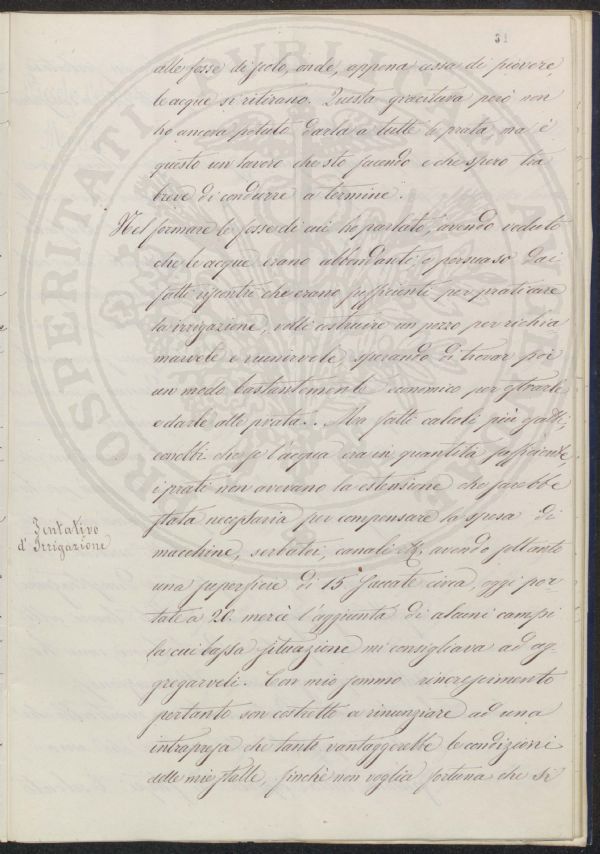 31
alle fosse di scolo, onde, appena cessa di piovere,
le acque si ritirano. Questa gravitura però non
ho ancora potuto darla a tutte le prata, ma è
questo un lavoro che sto facendo e che spero tra
breve di condurre a termine.
Nel formare le fosse di cui ho parlato, avendo veduto
che le acque erano abbondanti, e persuaso dai
fatti riscontri che erano sufficienti per praticare
la irrigazione, volli costruire un pozzo per richia
marvele e riunirvele, sperando di trovar poi
un modo bastantemente economico per estrarle
e darle alle prata. Ma fatti calcoli più esatti,
conobbi che se l'acqua era in quantità sufficiente,
i prati non avevano la estensione che sarebbe
stata necessaria per compensare la spesa di
Tentativo
d'Irrigazione
macchine, serbatoi, canali &. avendo soltanto
una superficie di 15 saccate circa, oggi por-
tate a 20. mercè l'aggiunta di alcuni campi
la cui bassa situazione mi consigliava ad ag-
gregarveli. Con mio sommo rincrescimento
pertanto son costretto a rinunziare ad una
intrapresa che tanto vantaggerebbe le condizioni
delle mie stalle, finchè non voglia fortuna che si
PROSPERITATI PUBLICAE AUGENDAE